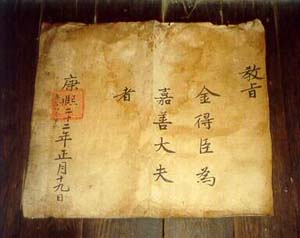 教旨
金得臣為
嘉善大夫
者
康熙二十二年正月十九日